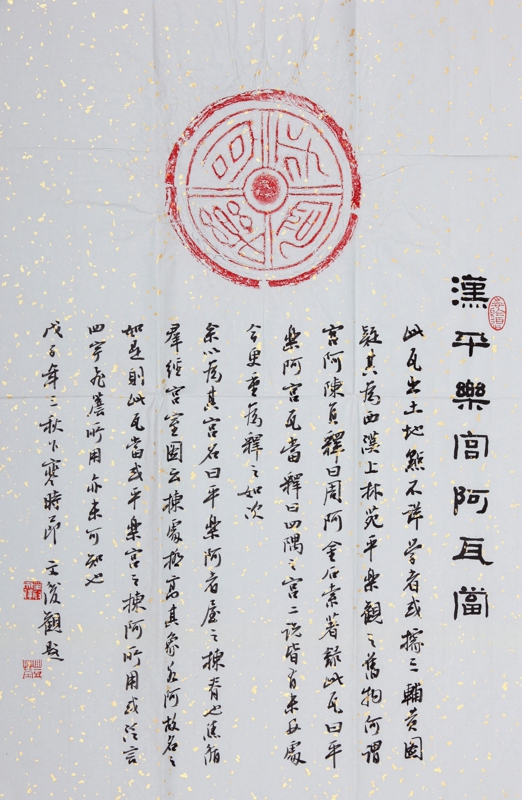 漢平樂宮阿瓦當
此瓦出土地點不詳學者或據三輔黃圖
疑其爲西漢上林苑平樂觀之舊物何謂
宮阿陳直釋曰周阿金石索著錄此瓦曰平
樂阿宮瓦當釋曰四隅之宮二說皆有未安處
今更重爲釋之如次
余以爲其宮名曰平樂阿者屋之棟脊也焦循
群經宮室圖云棟處極高其象爲阿故名之
如是則此瓦當或平樂宮之棟阿所用或泛言
四宇飛簷所用亦未可知也
戊子年三秋乍寒時節 俊觀題